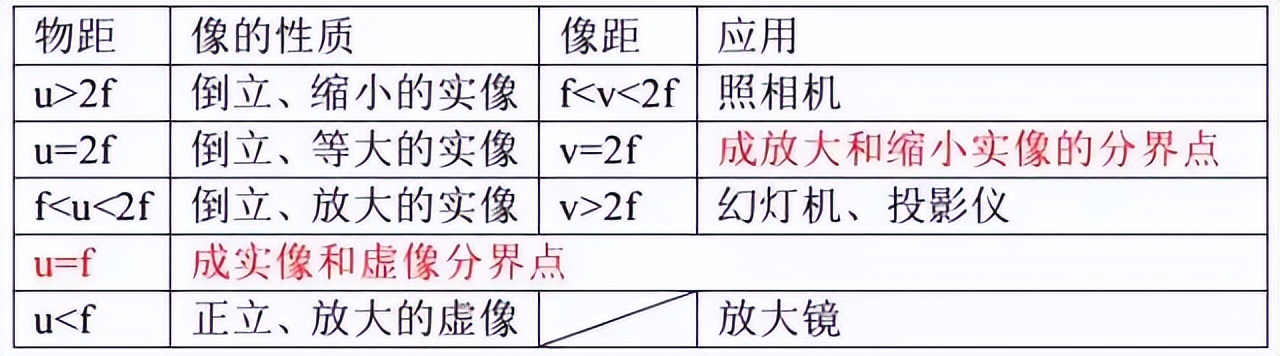 物距 像的性质 像距 应用
u>2f 倒立、缩小的实像 f<v<2f 照相机
u=2f 倒立、等大的实像 v=2f 成放大和缩小实像的分界点
f<u<2f 倒立、放大的实像 v>2f 幻灯机、投影仪
u=f 成实像和虚像分界点
u<f 正立、放大的虚像 放大镜